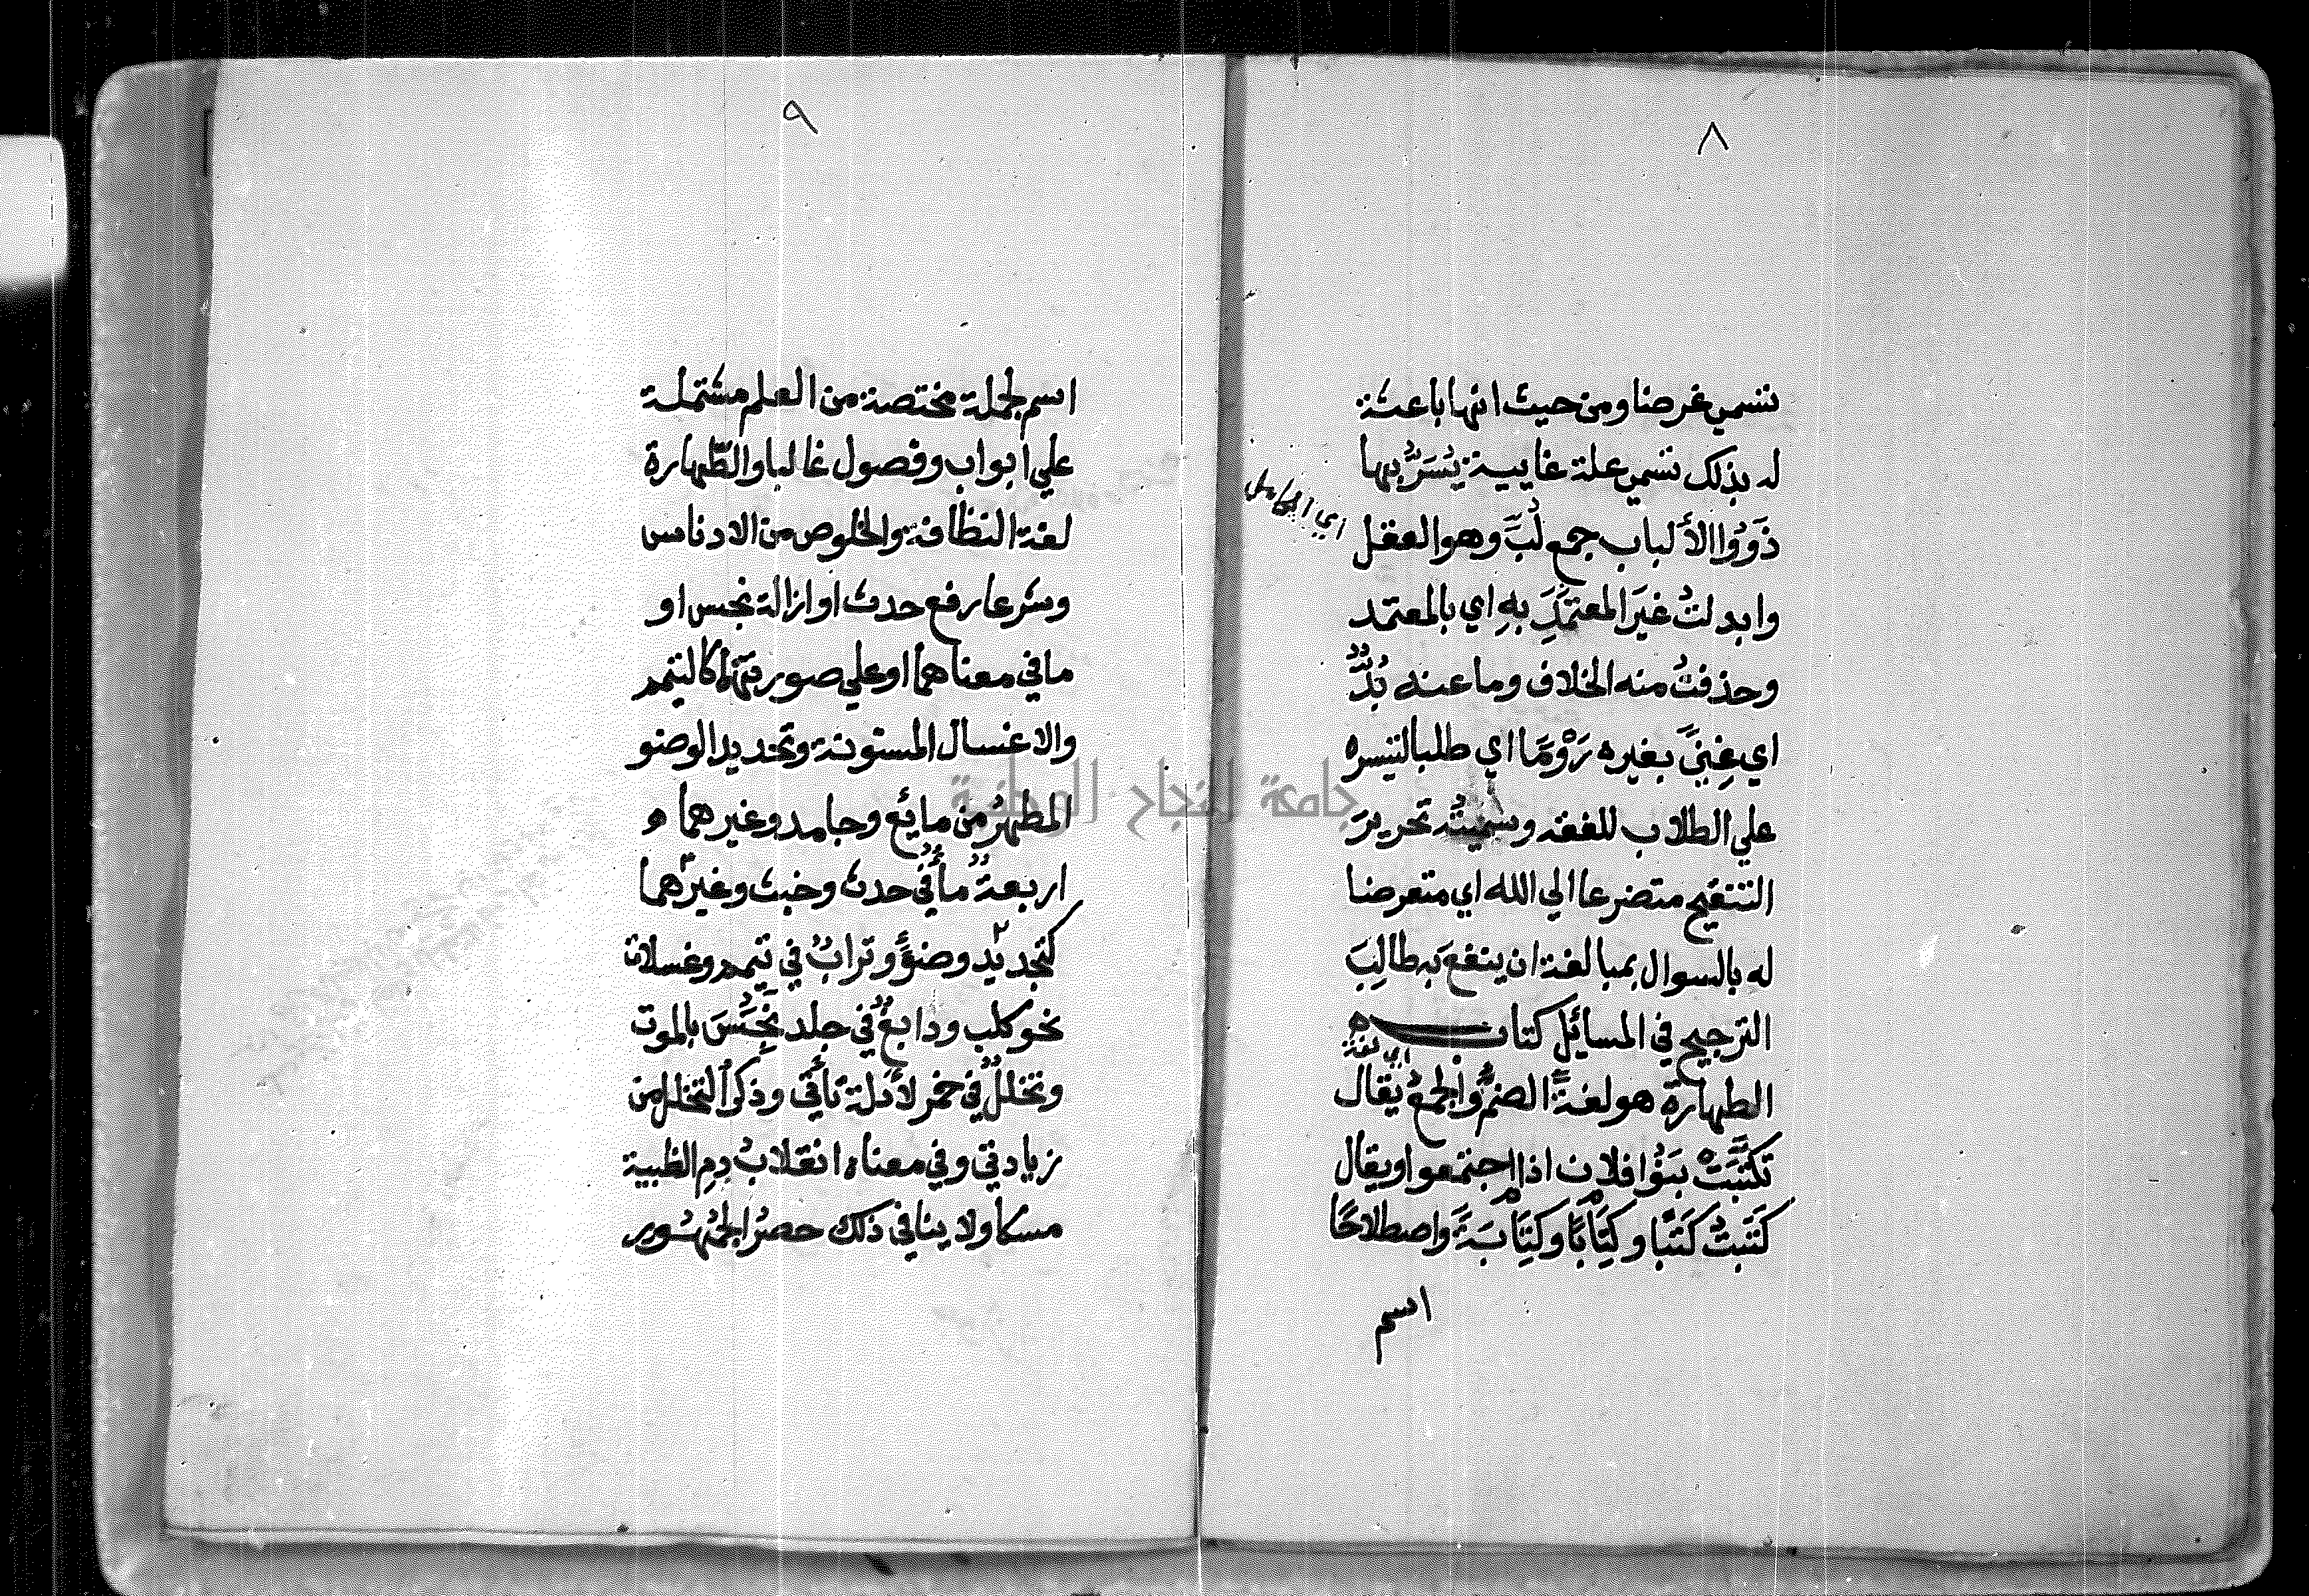 ٨
تسمي غرضا ومن حيث انها باعثة
له بذلك تسمي علة غايية يُسَرُّ بها
ذَوُوا الألباب جمع لُبَّ وهو العقل
اي الكامل
وابدلتُ غيرَ المعتمَدِ بِهِ اي بالمعتمد
وحذفتُ منه الخلاف وما عنه بُدٌّ
اي غِنيً بغيره رَوْمًا اي طلبا لتيسره
علي الطلاب للفقه وسميتُه تحريرَ
التنقيح متضرعا الي الله اي متعرضا
له بالسوال بمبالغة ان ينفعَ به طالِبَ
الترجيح في المسائل كتاب
اي لغة
الطهارة هو لغةً الضمُّ والجمعُ يقال
تكتبَتْ بَنُوا فلان اذا اجتمعوا ويقال
كَتَبتُ كَتْبا وكِتَابًا وكِتَابَةً واصطلاحًا
اسم
٩
اسم لجملة مختصة من العلم مشتملة
علي ابواب وفصول غالبا والطّهارة
لغة النظافة والخلوص من الادناس
وشرعا رفع حدث او ازالة نجس او
ما في معناهما او علي صورتهما كالتيمم
والاغسال المسنونة وتجديد الوضو
المطهرُ من مايع وجامد وغيرهما ه
اربعةٌ ماءٌ في حدث وخبث وغيرهما
كتجديد وضوءٍ وترابٌ في تيمم وغسلات
نحو كلب ودابغٌ في جلد نَجُسَ بالموت
وتخللٌ في خمر لأدلة تأتي وذكرُ التخلل من
زيادتي وفي معناه انقلابُ دمِ الظبية
مسكا ولا ينافي ذلك حصرُ الجمهور
جامعة النجاح الوطنية